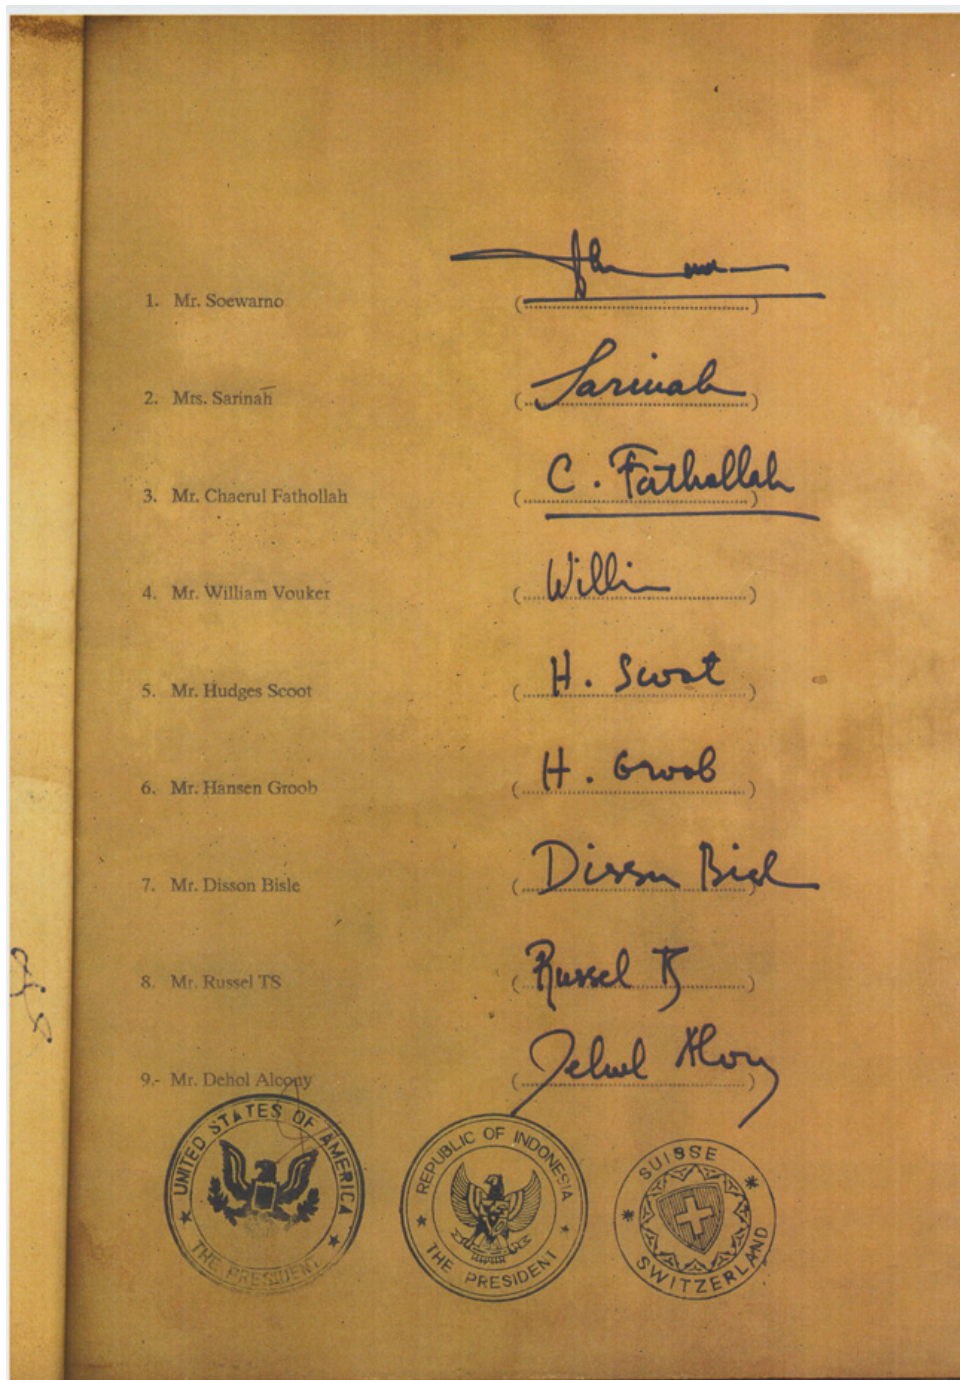 1. Mr. Soewarno (..............................)
2. Mrs. Sarinah (..............................) Sarinah
3. Mr. Chaerul Fathollah (..............................) C. Fathollah
4. Mr. William Vouker (..............................) Willi
5. Mr. Hudges Scoot (..............................) H. Scoot
6. Mr. Hansen Groob (..............................) H. Groob
7. Mr. Disson Bisle (..............................) Disson
8. Mr. Russel TS (..............................) Russel TS
9.- Mr. Dehol Alcony (..............................)
UNITED STATES OF AMERICA
THE PRESIDENT
REPUBLIC OF INDONESIA
THE PRESIDENT
SUISSE
SWITZERLAND